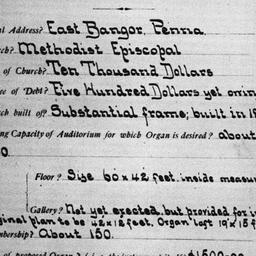 Address? East Bangor, Penna.
Methodist Episcopal
of Church? Ten Thousand Dollars
of Debt? Five Hundred Dollars yet owing
built of? Substantial frame; built in
Capacity of Auditorium for which Organ is desired? about
Floor? Size 60 x 42 feet. inside
Gallery? Not yet erected, but provided for in
plan to be 42 x 12 feet, Organ loft 19 x 15 f
About 150.
of proposed Organ?